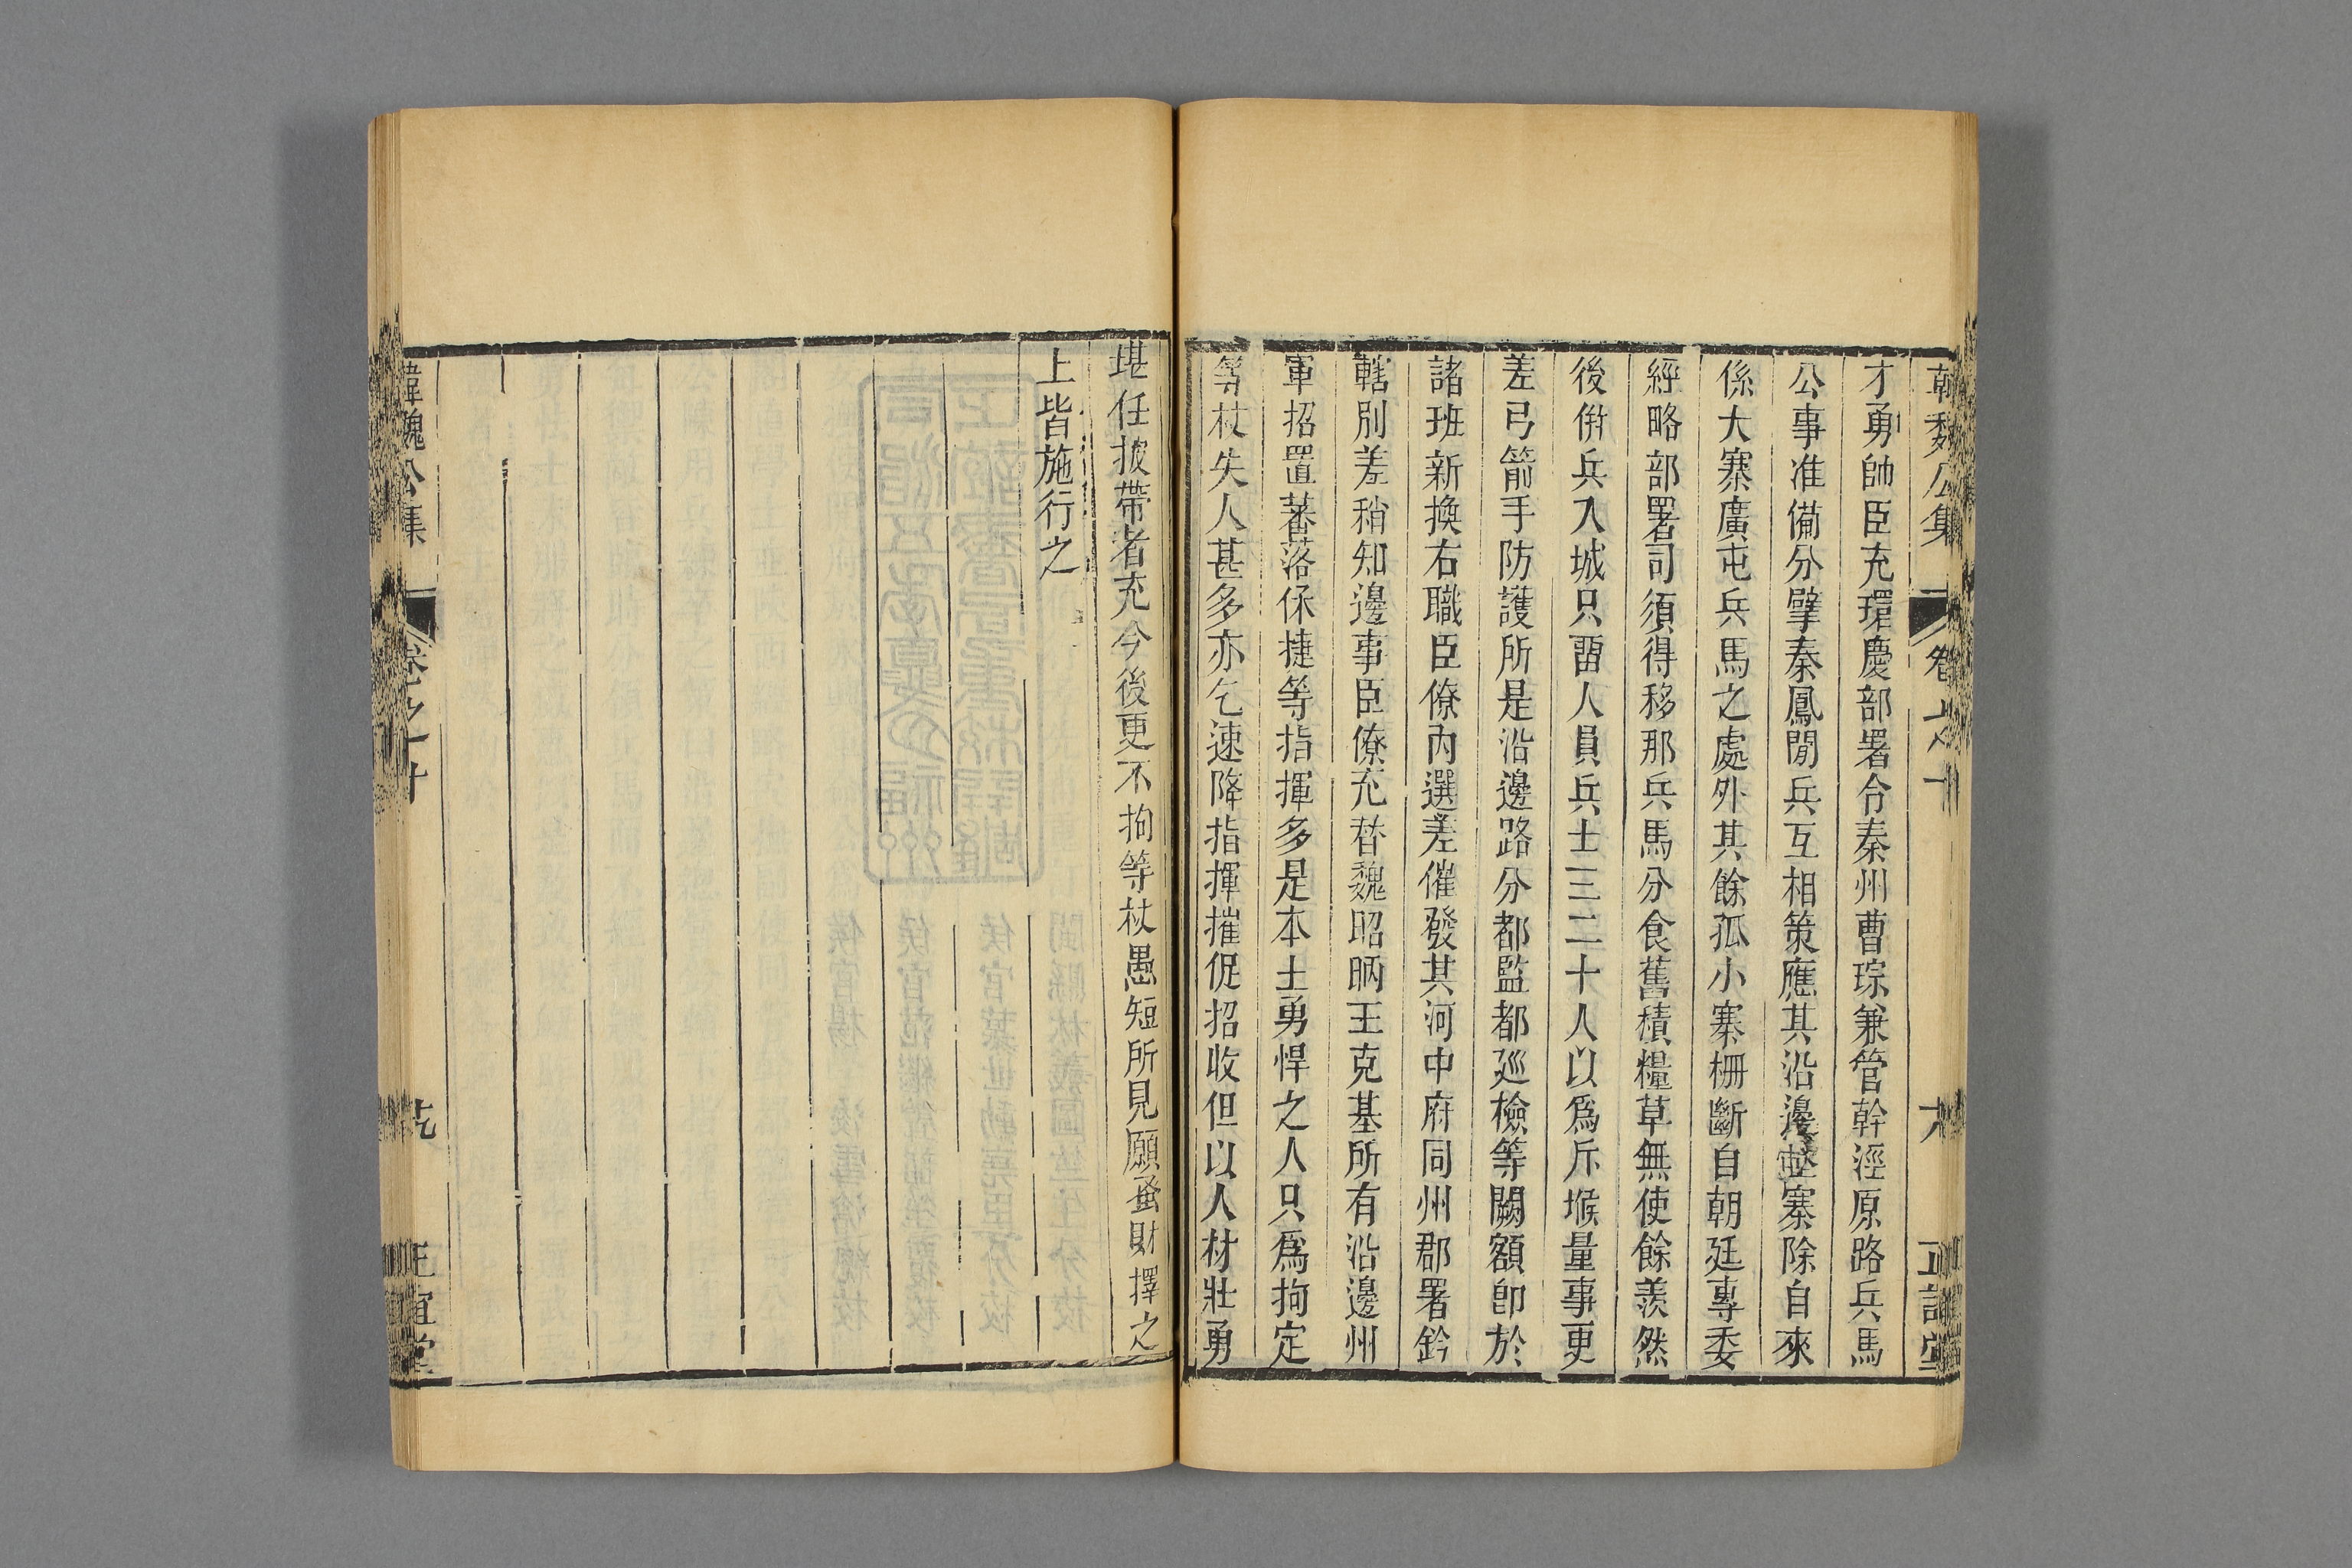 韓魏公集 卷之十 六 正誼堂
才勇帥臣充環慶部署令秦州曹琮兼管幹涇原路兵馬
公事准備分擘秦鳳閒兵互相策應其沿邊堡寨除自來
係大寨廣屯兵馬之處外其餘孤小寨柵斷自朝廷專委
經略部署司須得移那兵馬分食舊積糧草無使餘羨然
後倂兵入城只畱人員兵士三二十人以爲斥堠量事更
差弓箭手防護所是沿邊路分都監都廵檢等闕額卽於
諸班新換右職臣僚內選差催發其河中府同州郡署鈐
轄別差稍知邊事臣僚充替魏昭昞王克基所有沿邊州
軍招置蕃落保捷等指揮多是本土勇悍之人只爲拘定
等杖失人甚多亦乞速降指揮摧促招收但以人材壯勇
堪任披帶者充今後更不拘等杖愚短所見願蚤財擇之
上皆施行之
韓魏公集 卷之十 正誼堂